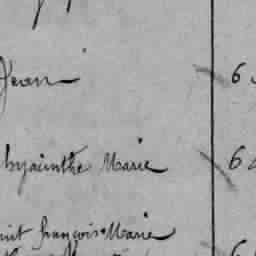 Jean 6
hyacinthe Marie 6
françois Marie 6